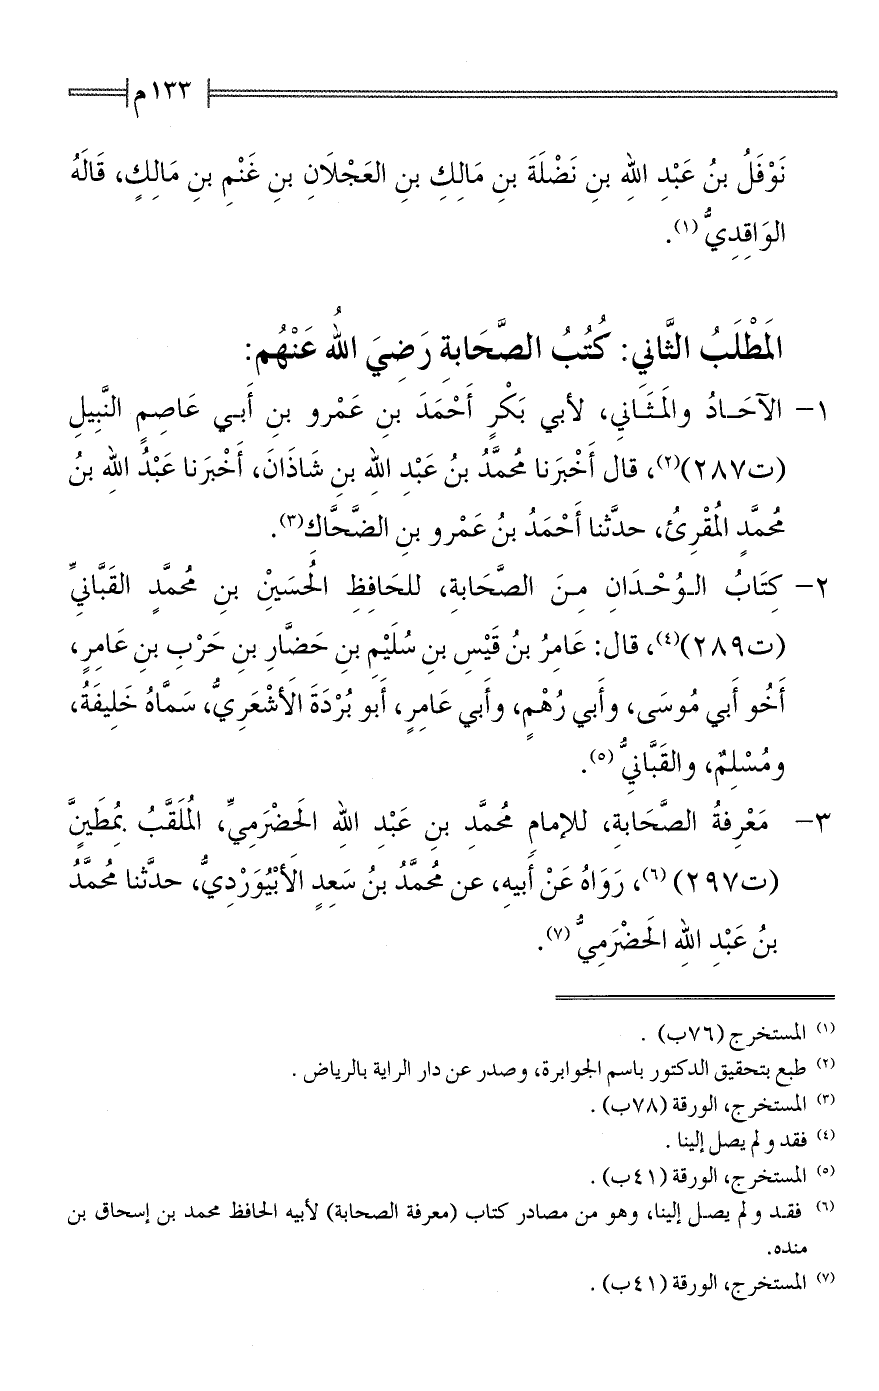 ١٣٣م
نَوْفَلُ بنُ عَبْدِ اللهِ بنِ نَضْلَةَ بنِ مَالِكِ بنِ العَجْلَانِ بنِ غَنْمِ بنِ مَالِكٍ، قَالَهُ
الوَاقِدِيُّ(١).
المَطْلَبُ الثَّاني: كُتُبُ الصَّحَابة رَضِيَ اللهُ عَنْهُم:
١- الآحَادُ والمَثَاني، لأبي بَكْرٍ أَحْمَدَ بنِ عَمْرو بنِ أبي عَاصِمٍ النَّبيلِ
(ت٢٨٧)(٢)، قال أَخْبَرنا مُحمَّدُ بنُ عَبْدِ الله بنِ شَاذَانَ، أَخْبَرنا عَبْدُ الله بنُ
مُحمَّدٍ المُقْرِئُ، حدَّثنا أَحْمَدُ بنُ عَمْرو بنِ الضَّحَّاكِ(٣).
٢- كِتَابُ الوُحْدَانِ مِنَ الصَّحَابةِ، للحَافِظِ الحُسَيْنِ بنِ مُحمَّدٍ القَبَّانيِّ
(ت٢٨٩)(٤)، قال: عَامِرُ بنُ قَيْسِ بنِ سُلَيْمِ بنِ حَضَّارِ بنِ حَرْبِ بنِ عَامِرٍ،
أَخُو أبي مُوسَى، وأبي رُهْمٍ، وأبي عَامِرٍ، أبو بُرْدَةَ الأَشْعَرِيُّ، سَمَّاهُ خَلِيفَةُ،
ومُسْلِمٌ، والقَبَّانيُّ(٥).
٣- مَعْرِفةُ الصَّحَابةِ، للإمَامِ مُحمَّدِ بنِ عَبْدِ اللهِ الحَضْرَميِّ، المُلَقَّبُ بمُطَينٍ
(ت٢٩٧)(٦)، رَوَاهُ عَنْ أبيه، عن مُحمَّدُ بنُ سَعِدٍ الأَبْيُوَرْدِيُّ، حدَّثنا مُحمَّدُ
بنُ عَبْدِ اللهِ الحَضْرَميُّ(٧).
(١) المستخرج (٧٦ب) .
(٢) طبع بتحقيق الدكتور باسم الجوابرة، وصدر عن دار الراية بالرياض .
(٣) المستخرج، الورقة (٧٨ب) .
(٤) فقد ولم يصل إلينا .
(٥) المستخرج، الورقة (٤١ب) .
(٦) فقد ولم يصل إلينا، وهو من مصادر كتاب (معرفة الصحابة) لأبيه الحافظ محمد بن إسحاق بن
منده.
(٧) المستخرج، الورقة (٤١ب) .